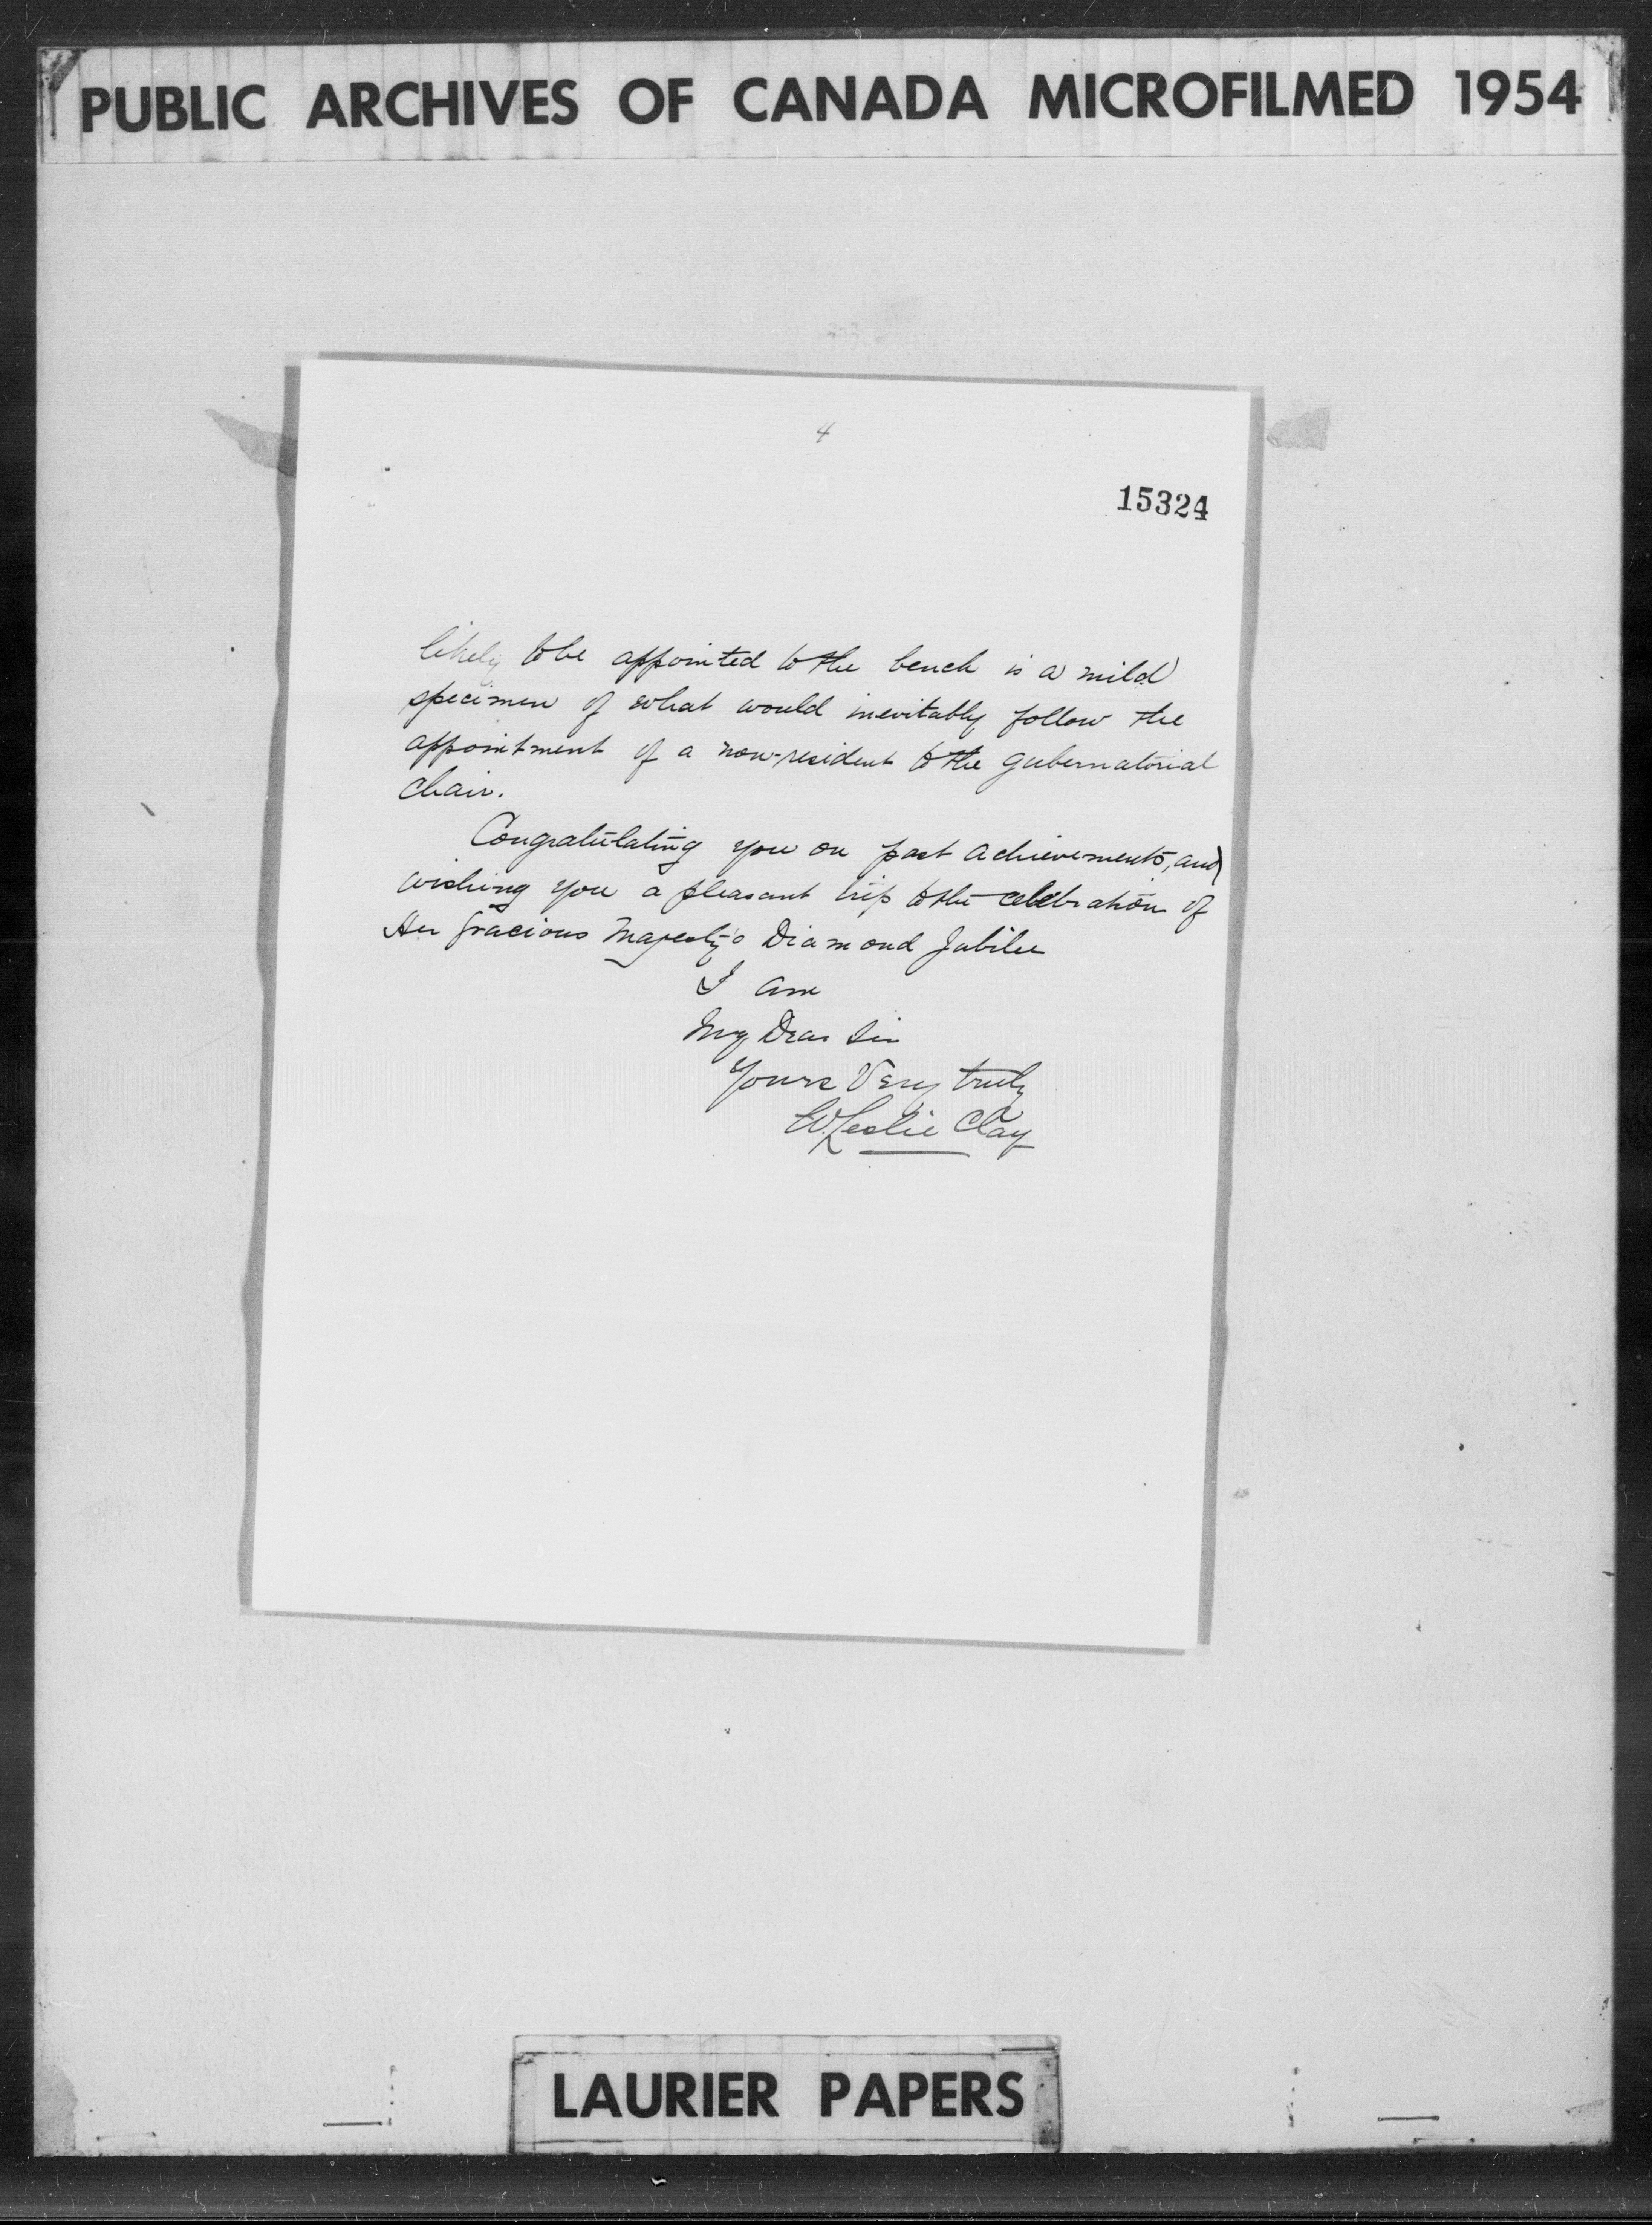 PUBLIC ARCHIVES OF CANADA MICROFILMED 1954
4
15324
likely to be appointed to the bench is a mild
specimen of what would inevitably follow the
appointment of a non-resident to the gubernatorial
chair.
Congratulating you on past achievements, and
wishing you a pleasant trip to the celebration of
Her Gracious Majesty's Diamond Jubilee
I am
My Dear Sir
Yours Very truly
W. Leslie Clay
LAURIER PAPERS